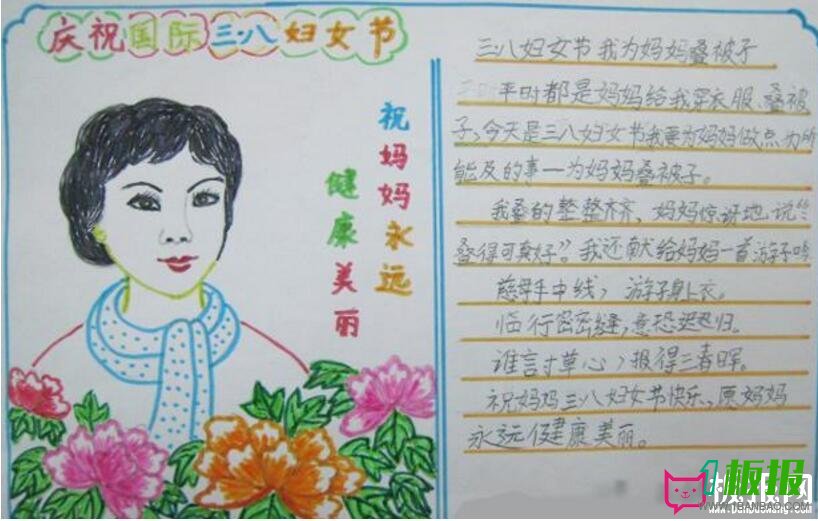 庆祝国际三八妇女节
祝妈妈永远
健康美丽
三八妇女节我为妈妈叠被子
平时都是妈妈给我穿衣服、叠被
子,今天是三八妇女节我要为妈妈做点力所
能及的事一为妈妈叠被子。
我叠的整整齐齐、妈妈惊讶地说“
叠得可真好”。我还献给妈妈一首游子吟
慈母手中线,游子身上衣。
临行密密缝,意恐迟迟归。
谁言寸草心,报得三春晖。
祝妈妈三八妇女节快乐、愿妈妈
永远健康美丽。
1板报
www.1banbao.com